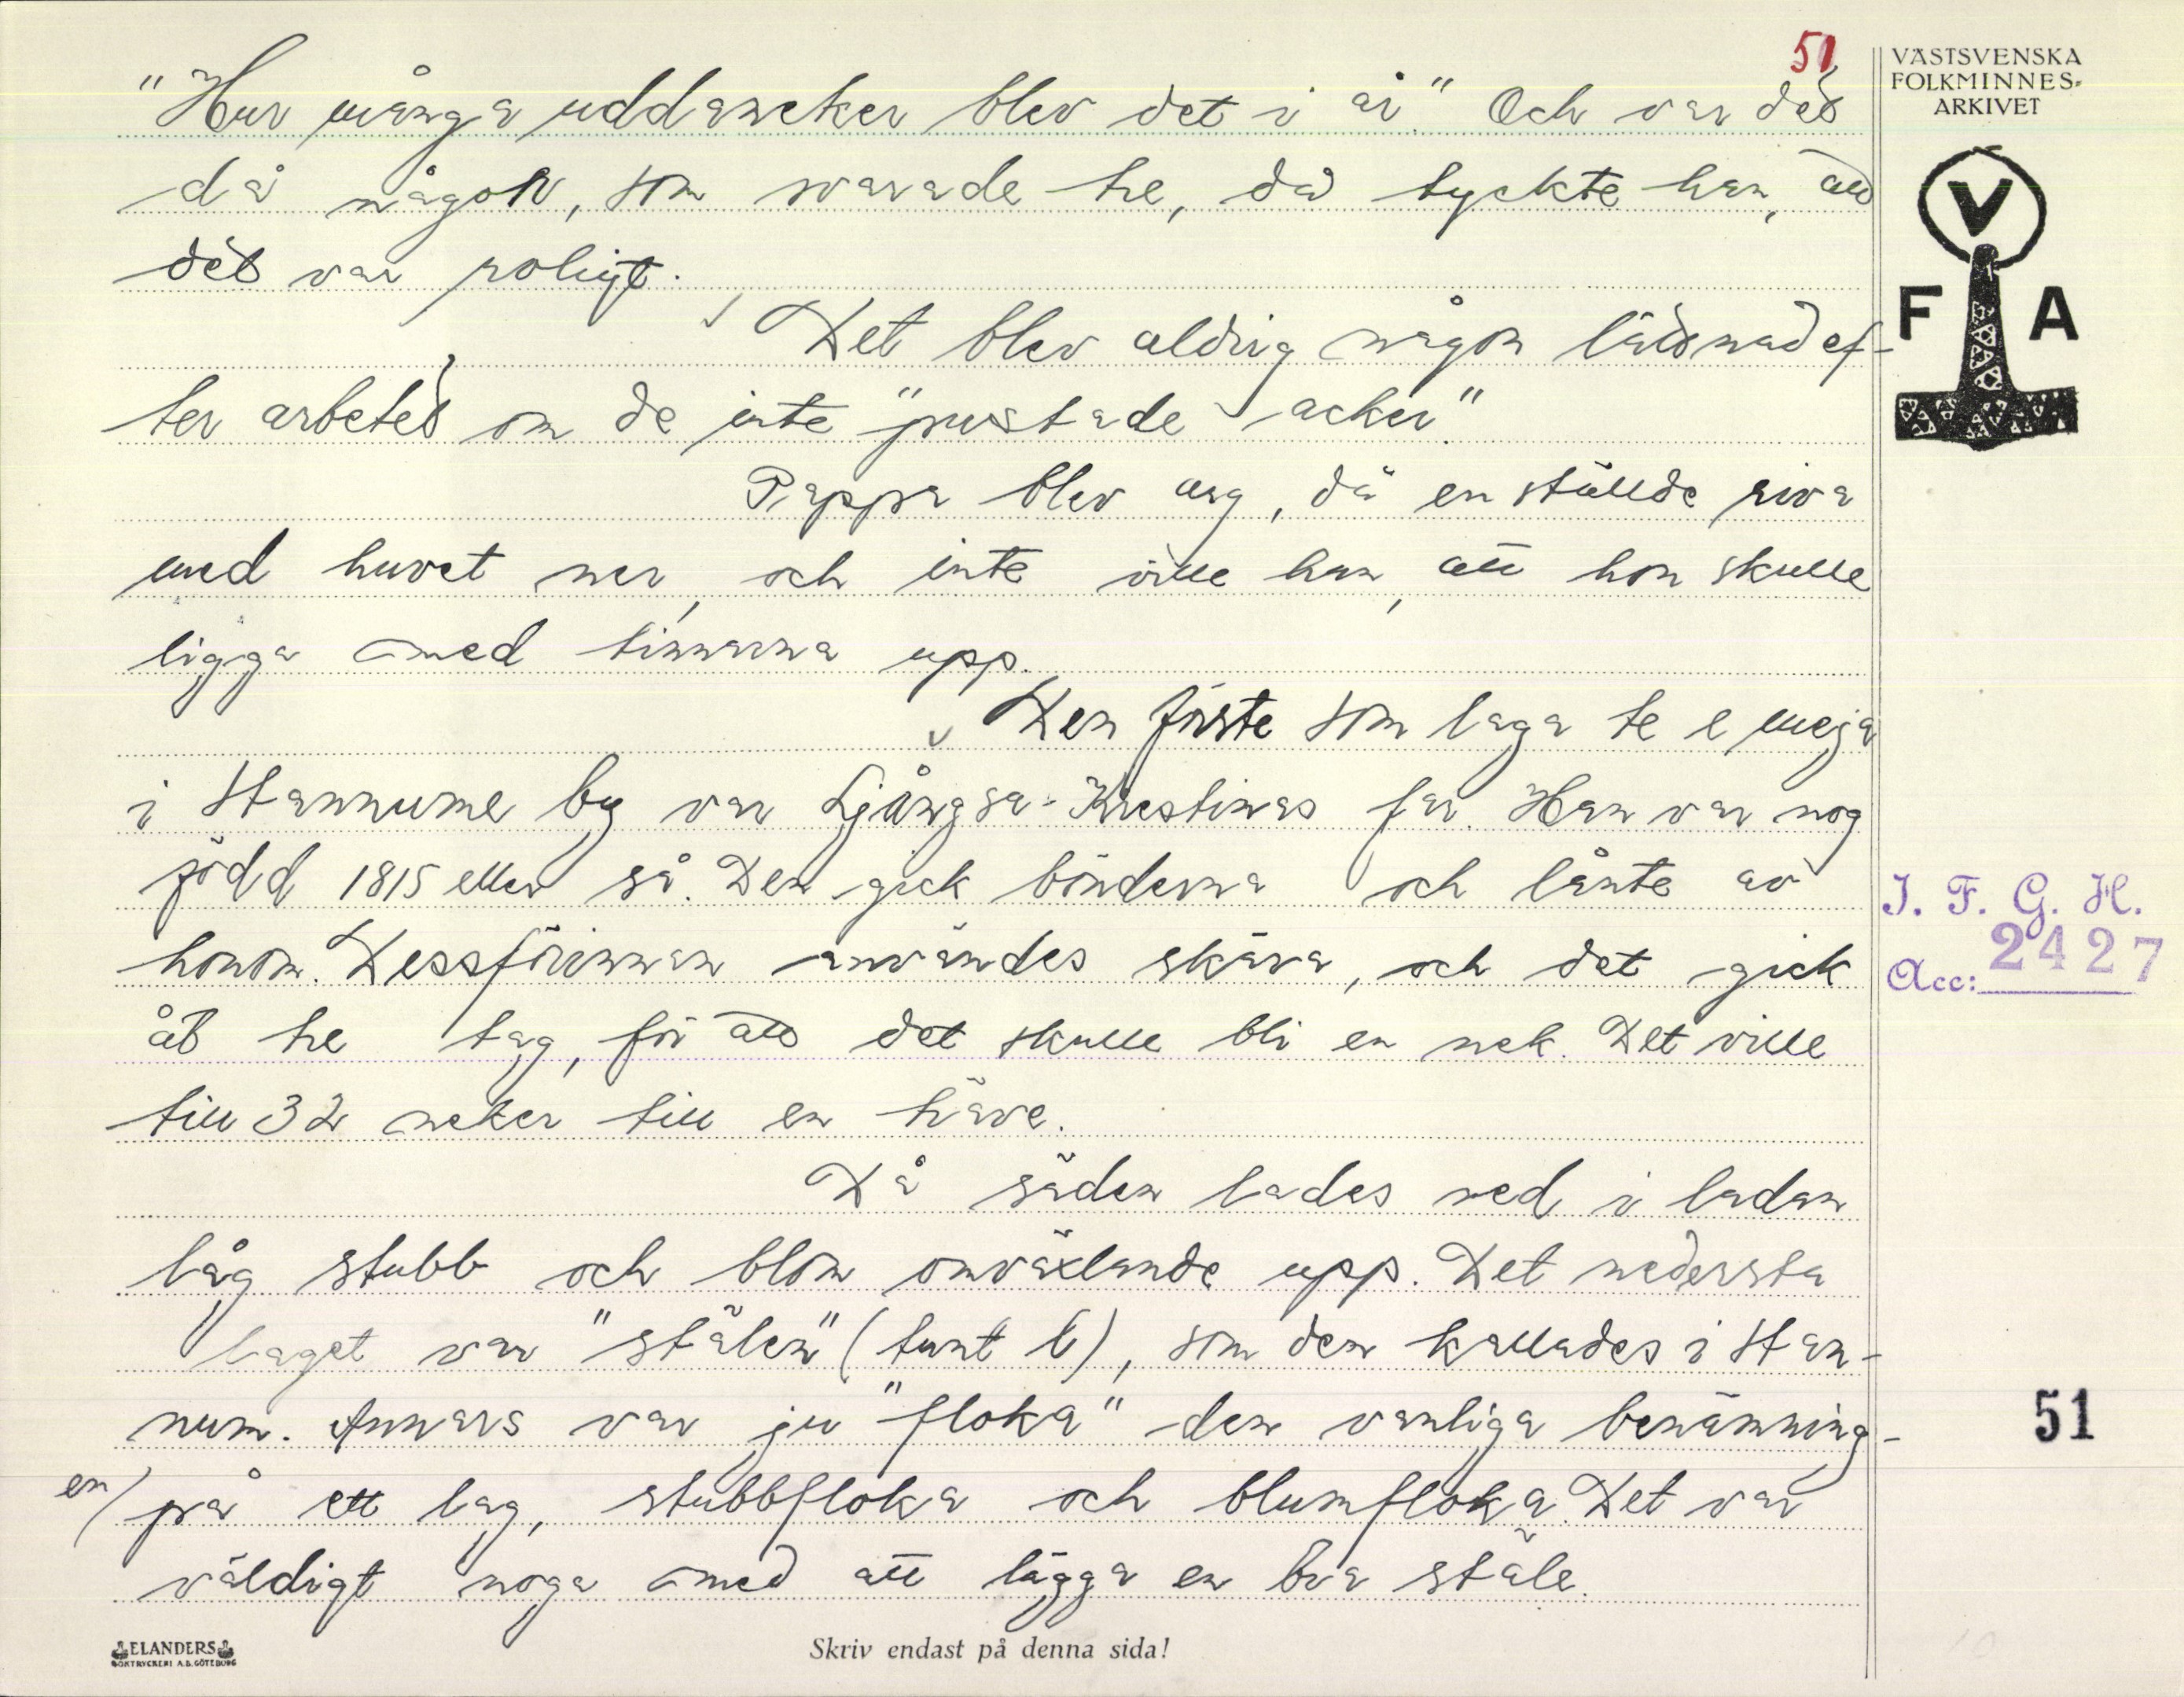 51
"Hur många uddaneker blev det i år." Och var det
då någon, som svarade tre, då tyckte han, att
det var roligt.
Det blev aldrig någon lättnad ef-
ter arbetet, om de inte "pustade acker".
Pappa blev arg, då en ställde riva
med huvet ner, och inte ville han, att hon skulle
ligga med tinnarna upp.
Den förste som laga te e meja
i Stannums by var Ljångsa-Krestinas far. Han var nog
född 1815 eller så. Den gick bönderna och lånte av
honom. Dessförinnan användes skära, och det gick
åt tre tag, för att det skulle bli en nek. Det ville
till 32 neker till en träve.
Då säden lades ned i ladan
låg stubb och blom omväxlande upp. Det nedersta
laget var "stålen" (tunt l), som den kallades i Stan-
num. Annars var ju "floka" den vanliga benämning-
en på ett lag, stubbfloka och blumfloka. Det var
väldigt noga med att lägga en bra ståle.
VÄSTSVENSKA
FOLKMINNES-
ARKIVET
V
F A
I. F. G. H.
Acc: 2427
51
ELANDERS
BOKTRYCKERI A.B. GÖTEBORG
Skriv endast på denna sida!